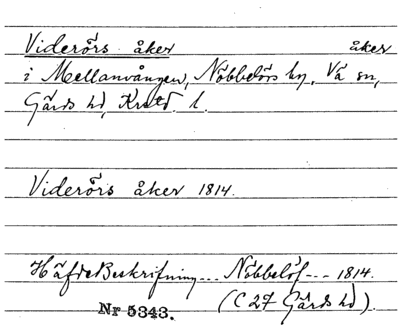 Viderörs åker åker
i Mellanvången, Nöbbelörs by, Vä sn,
Gärds hd, Krstd. l.
Viderörs åker 1814.
HäfdeBeskrifning... Nöbbelöf --- 1814.
(C 27 Gärds hd).
Nr 5343.